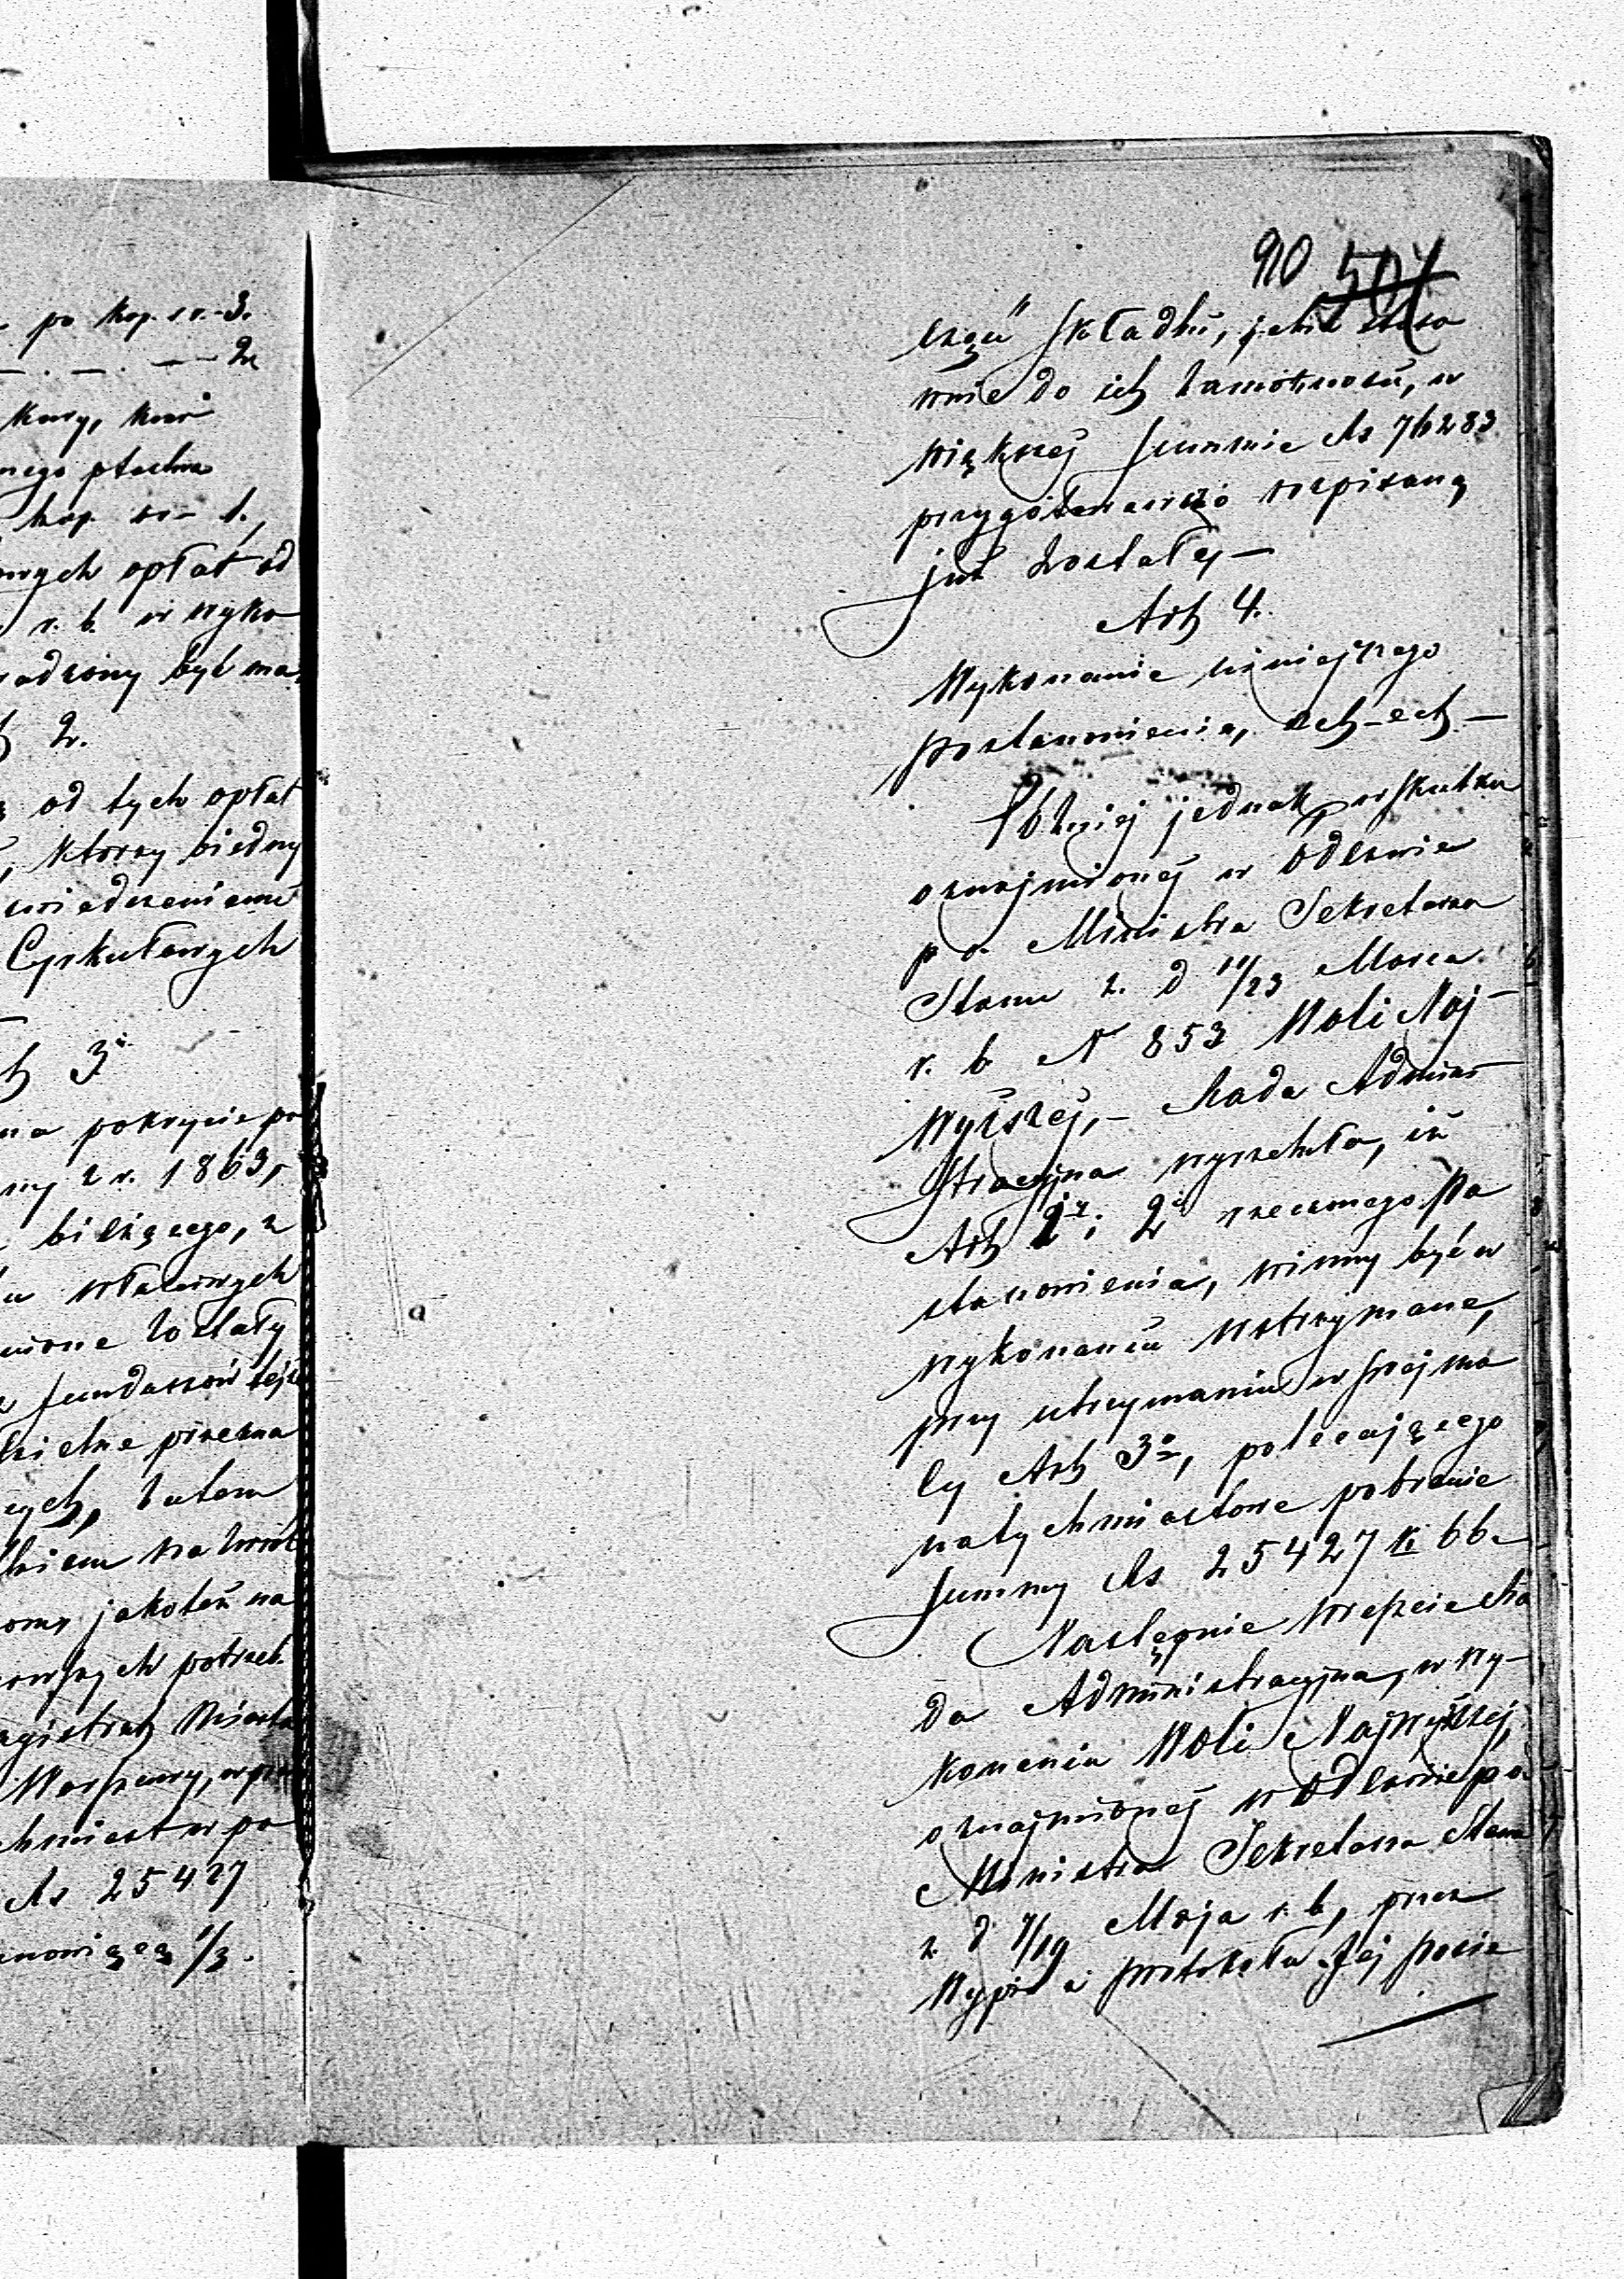 po kop. sr. 3.
2
kury, kur
nego ptactwa
kop. sr. 1.
nych opłat od
r. b. w wyko
adzony być ma,
2.
od tych opłat
, którzy biedny
świadczeniami
Cyrkułowych
3
na pokrycie po
ny z r. 1863,
bieżącego, z
u właściwych
nione zostały
funduszów tejże
dzielne przezna
cych, zatem
kiem na zwrot
jakoteż na
szych potrzeb
agistrat Miasta
Warszawy, w
chmiast w po
Rs 25427
anowiącą 1/3.
910 504
części składki, jaka stoso
wnie do ich zamożności, w
większej summie Rs 76283
przygotowawczo rozpisaną
już została. —
Art 4.
Wykonanie niniejszego
postanowienia, etc. etc. —
Później jednak w skutku
oznajmionej w Odezwie
p. o. Ministra Sekretarza
Stanu z d 11/23 Marca
r. b. N 853 Woli Naj-
wyższej, — Rada Admini
stracyjna wyrzekła, iż
Art 1 i 2 rzeczonego Po
stanowienia, winny być w
wykonaniu wstrzymane,
przy utrzymaniu w swej mo
cy Art 3o, polecającego
natychmiastowe pobranie
summy Rs 25427 k. 66.
Następnie wreszcie Ra
da Administracyjna, w wy-
konaniu Woli Najwyższej,
oznajmionej w Odezwie p. o.
Ministra Sekretarza Stanu
z d 7/19 Maja r. b., przez
Wypis z protokołu Jej posie